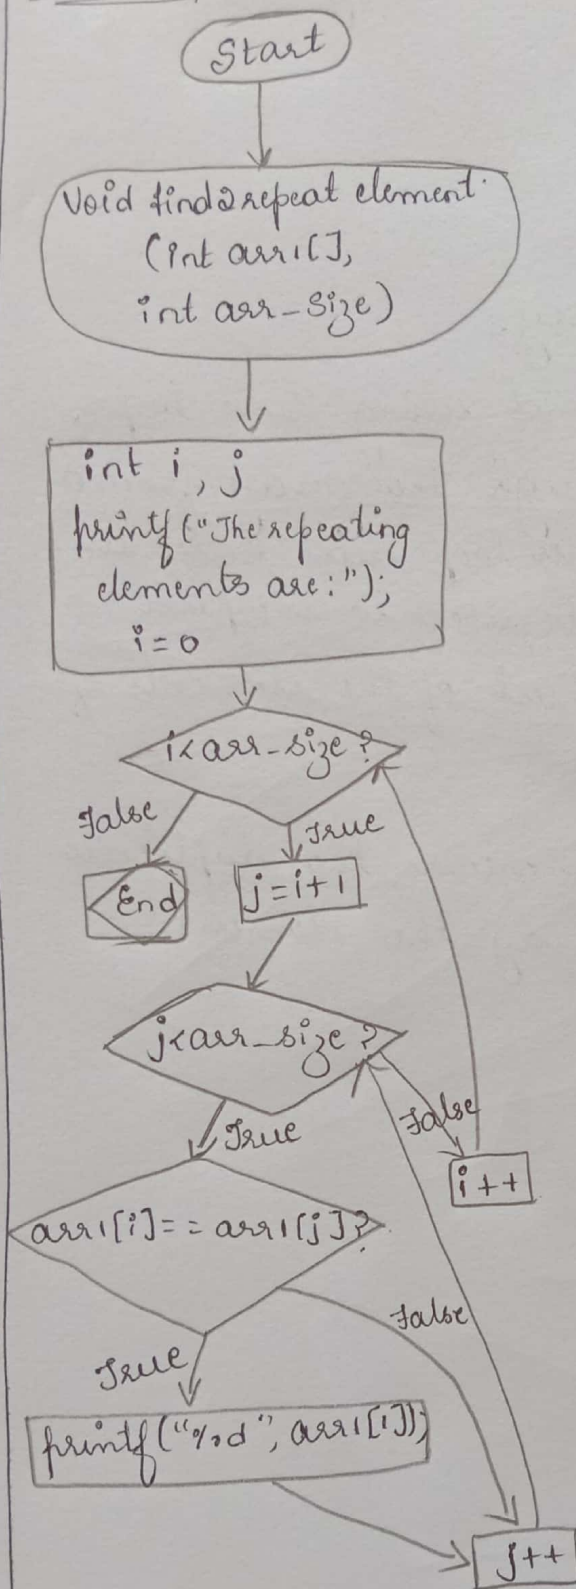 Start
Void find2repeat element
(int arr1[],
int arr-size)
int i, j
printf("The repeating
elements are:");
i=0
i<arr-size?
False
True
End
j=i+1
j<arr-size?
False
True
i++
arr1[i]==arr1[j]?
False
True
printf("%d", arr1[i]);
j++